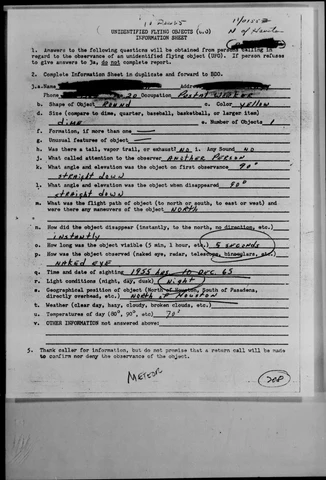 10 Dec 65
UNIDENTIFIED FLYING OBJECTS (UFO)
INFORMATION SHEET
N of Houston
1. Answers to the following questions will be obtained from persons calling in
regard to the observance of an unidentified flying object (UFO). If person refuses
to give answers to 3a, do not complete report.
2. Complete Information Sheet in duplicate and forward to BDO.
3.a. Name Address
Phone 20 Occupation Postal WORKER
b. Shape of Object ROUND c. Color yellow
d. Size (compare to dime, quarter, baseball, basketball, or larger item)
dime e. Number of Objects 1
f. Formation, if more one —
g. Unusual features of object —
h. Was there a tail, vapor trail, or exhaust? NO i. Any Sound NO
j. What called attention to the observer ANOTHER PERSON
k. What angle and elevation was the object on first observance 90°
straight down
l. What angle and elevation was the object when disappeared 90°
straight down
m. What was the flight path of object (to north or south, to east or west) and
were there any maneuvers of the object NORTH
n. How did the object disappear (instantly, to the north, no direction, etc.)
instantly
o. How long was the object visible (5 min, 1 hour, etc.) 5 seconds
p. How was the object observed (naked eye, radar, telescope, binoculars, etc.)
NAKED EYE
q. Time and date of sighting 1955 hrs 10 DEC. 65
r. Light conditions (night, day, dusk) Night
s. Geographical position of object (North of Houston, South of Pasadena,
directly overhead, etc.) NORTH of HOUSTON
t. Weather (clear day, hazy, cloudy, broken clouds, etc.)
u. Temperatures of day (80°, 90°, etc) 70°
v. OTHER INFORMATION not answered above:
5. Thank caller for information, but do not promise that a return call will be made
to confirm nor deny the observance of the object.
METEOR
208